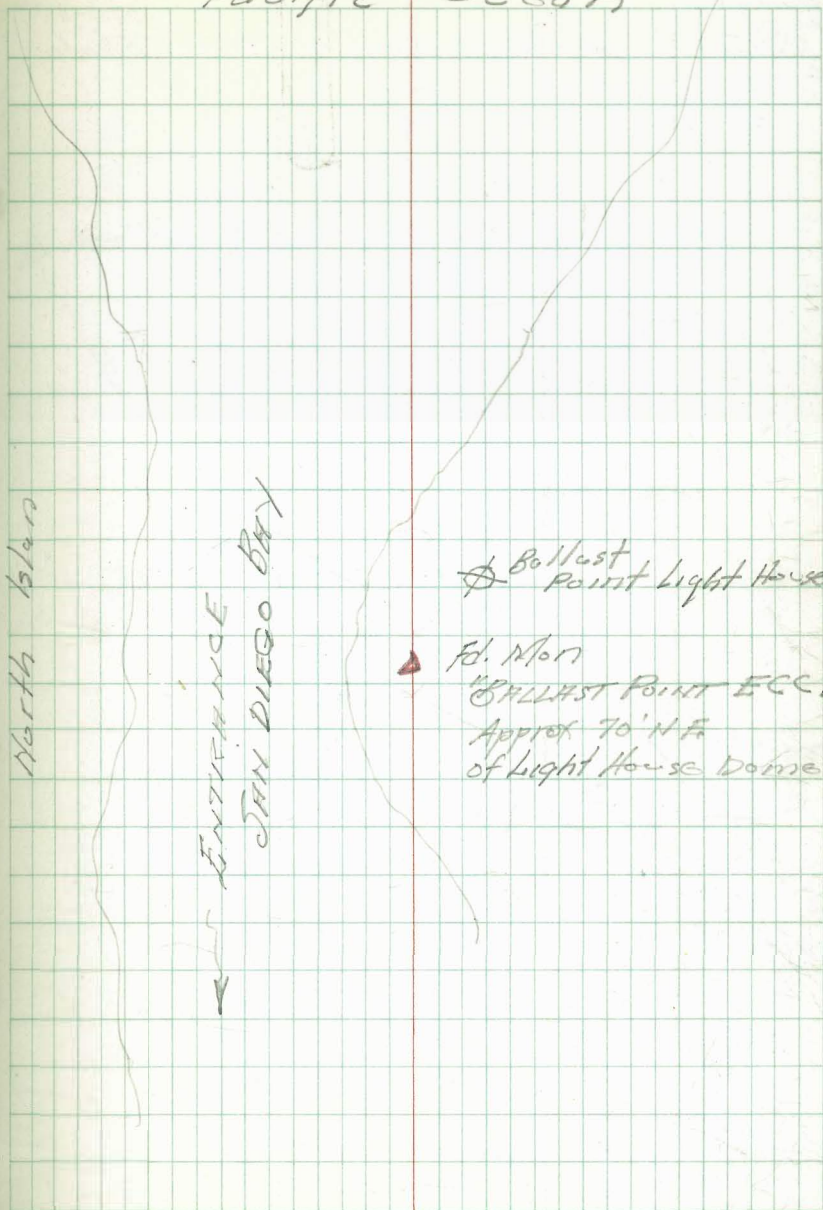 Pacific Ocean
North Islan
ENTRANCE
SAN DIEGO BAY
Ballast
Point Light House
Fd. Mon
"BALLAST POINT ECC.
Approx 70' N E
of Light House Dome